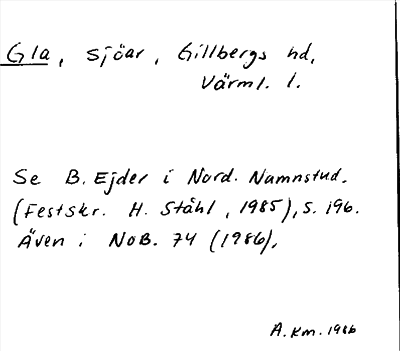 Gla, sjöar, Gillbergs hd,
Värml. l.
Se B. Ejder i Nord. Namnstud.
(Festskr. H. Ståhl, 1985), s. 196.
Även i NoB. 74 (1986),
A. Km. 1986